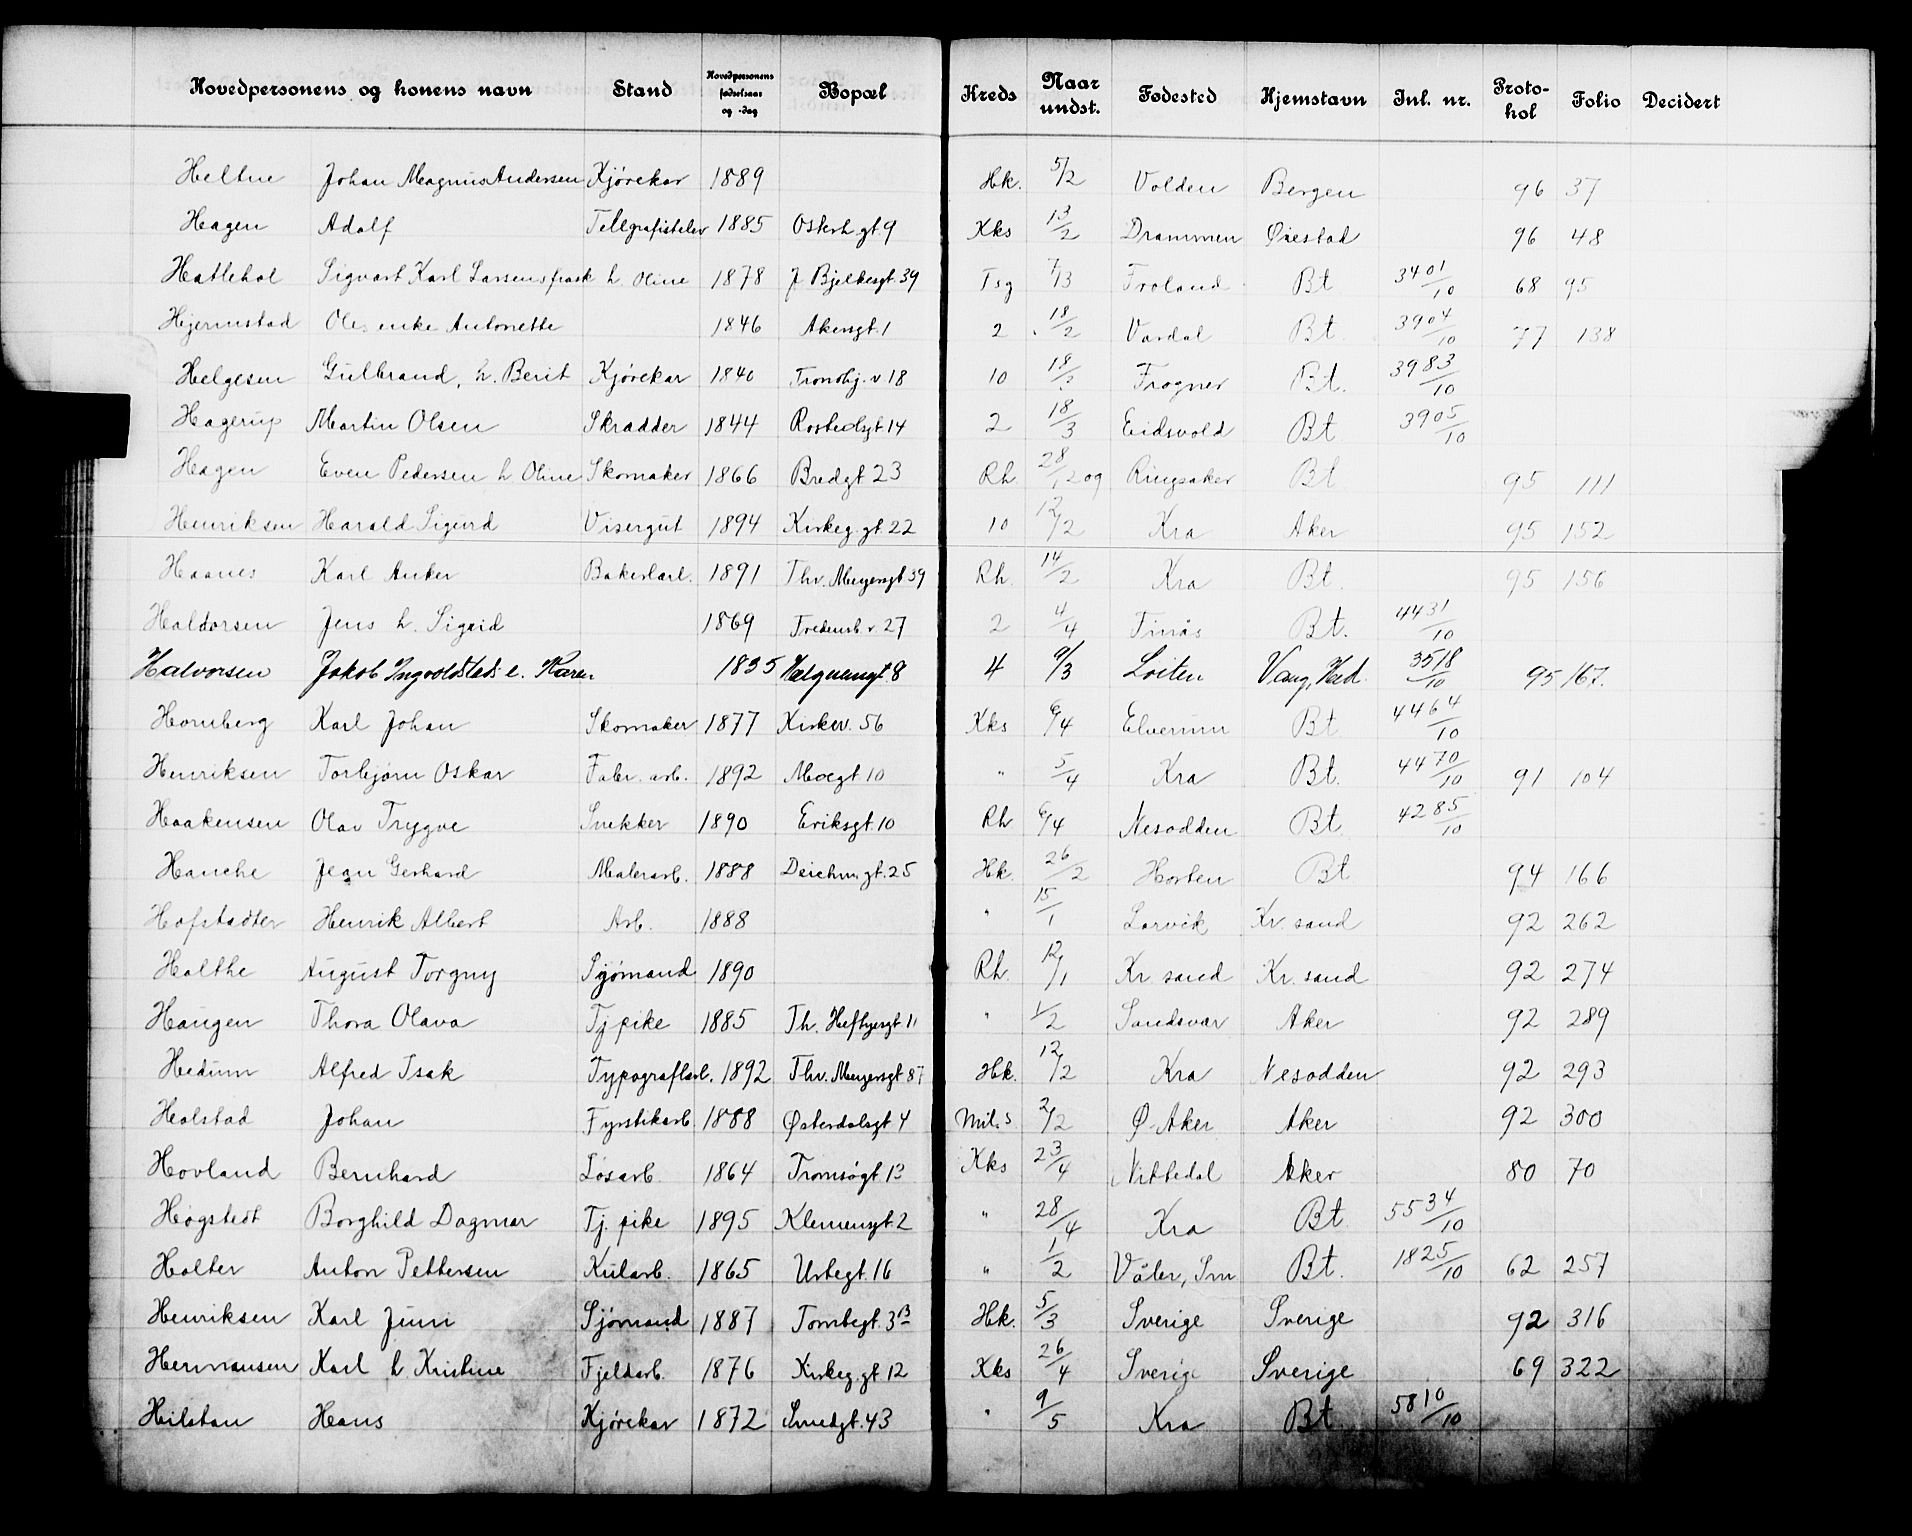 Hovedpersonens og konens navn Stand Hovedpersonens fødselsaar og -dag Bopæl Kreds Naar undst. Fødested Hjemstavn Inl. nr. Proto-kol Folio Decidert
Heltne Johan Magnus Andersen Kjørekar 1889 Hk. 5/2 Volden Bergen 96 37
Hagen Adolf Tellgrafistelev 1885 Osterh.gt. 9 Kks 13/2 Drammen Øiestad 96 48
Hattehol Sigvart Karl Larsens frask h. Oline 1878 J Bjelkesgt. 39 Tsg 7/3 Froland Bt 3401/10 68 95
Hjermstad Ole enke Antonette 1846 Akersgt. 1 2 18/2 Vardal Bt. 3904/10 77 138
Helgesen Gulbrand, h. Berit Kjørekar 1840 Trondhj. v 18 10 18/3 Frogner Bt. 3983/10
Hagerup Martin Olsen Skrædder 1844 Rostedsgt 14 2 18/3 Eidsvold Bt 3905/10
Hagen Even Pedersen h Oline Skomaker 1866 Bredgt 23 Rh 28/12 09 Ringsaker Bt 95 111
Henriksen Harald Sigurd Visergut 1894 Kirkeg.gt. 22 10 12/2 Kra Aker 95 152
Haanes Karl Anker Bakerlærl. 1891 Thv. Meyersgt 39 Rh. 14/2 Kra Bt. 95 156
Haldorsen Jens h. Sigrid 1869 Fredensb. v. 27 2 4/4 Finås Bt. 4431/10
Halvorsen Jakob Ingvoldstad: e. Karen 1835 Hælguengt 8 4 9/3 Løiten Vang, Hed. 3518/10 95 167.
Hornberg Karl Johan Skomaker 1877 Kirkev. 56 Kks 6/4 Elverum Bt 4464/10
Henriksen Torbjørn Oskar Fabr. arb. 1892 Moegt. 10 " 5/4 Kra Bt. 4470/10 91 104
Haakensen Olav Trygve Snekker 1890 Eriksgt. 10 Rh 6/4 Nesodden Bt. 4285/10
Hanche Jean Gerhard Malerarb. 1888 Deichm.gt. 25 Hk. 26/2 Horten Bt 94 166
Hofstadter Henrik Albert Arb. 1888 " 15/1 Larvik Kr. sand 92 262
Holthe August Torgny Sjømand 1890 Rh. 12/1 Kr sand Kr. sand 92 274
Haugen Thora Olava Tj pike 1885 Th. Heftyesgt 11 " 1/2 Sandsvær Aker 92 289
Hedum Alfred Isak Typograflærl. 1892 Thv. Meyersgt 87 Hk. 12/2 Kra Nesodden 92 293
Halstad Johan Fyrstikarb. 1888 Østerdalsgt 4 Mil.s 2/2 Ø. Aker Aker 92 300
Hovland Bernhard Løsarb. 1864 Tromsøgt 13 Kks 23/4 Nittedal Aker 80 70
Høgstedt Borghild Dagmar Tj. pike 1895 Klemensgt 2 " 28/4 Kra Bt. 5534/10
Holter Anton Pettersen Kularb. 1865 Urtegt. 16 " 1/2 Våler, Sm Bt. 1825/10 62 257
Henriksen Karl Juni Sjømand 1887 Tomtegt. 3 B Hk. 5/3 Sverige Sverige 92 316
Hermansen Karl h Kristine Fjeldarb. 1876 Kirkeg.gt. 12 Kks 26/4 Sverige Sverige 69 322
Hilstan Hans Kjørekar 1872 Smedgt. 43 " 9/5 Kra Bt 5810/10